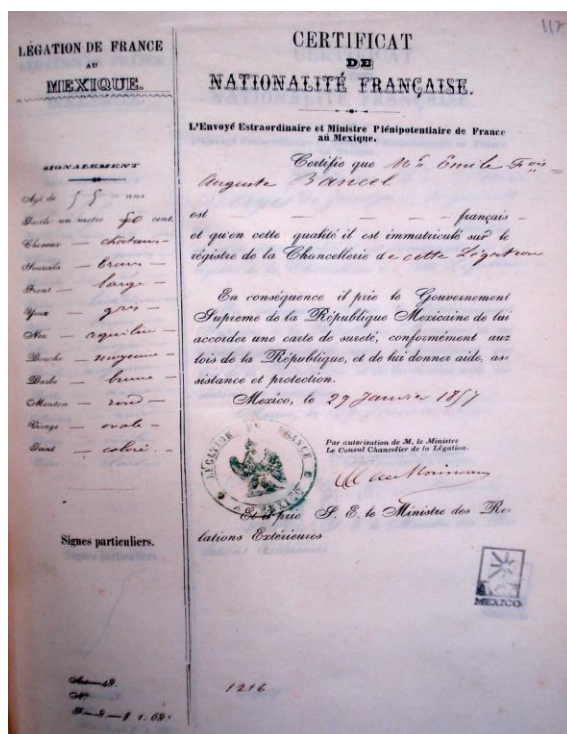 117
LÉGATION DE FRANCE
AU
MEXIQUE.
SIGNALEMENT
Agé de 55 ans
Taille un metre 70 cent.
Cheveux — chatains —
Sourcils — bruns —
Front — large —
Yeux — gris —
Nez — aquilin —
Bouche — moyenne —
Barbe — brune —
Menton — rond —
Visage — ovale —
Teint — coloré. —
Signes particuliers.
Art. 48.
Nº
CERTIFICAT
DE
NATIONALITÉ FRANÇAISE.
L'Envoyé Estraordinaire et Ministre Plénipotentiaire de France
au Mexique.
Certifie que Mr. Emile Fois
Auguste Bancel
est — — — — — français —
et qu'en cette qualité il est immatriculé sur le
régistre de la Chancellerie de cette Légation
En conséquence il prie le Gouvernement
Supreme de la République Mexicaine de lui
accorder une carte de sureté, conformément aux
lois de la République, et de lui donner aide, as-
sistance et protection.
Mexico, le 29 Janvier 1857
LÉGATION DE FRANCE
MEXICO
Par autorisation de M. le Ministre
Le Consul Chancelier de la Légation.
Et il prie S. E. le Ministre des Re-
lations Extérieures
MEXICO
1216